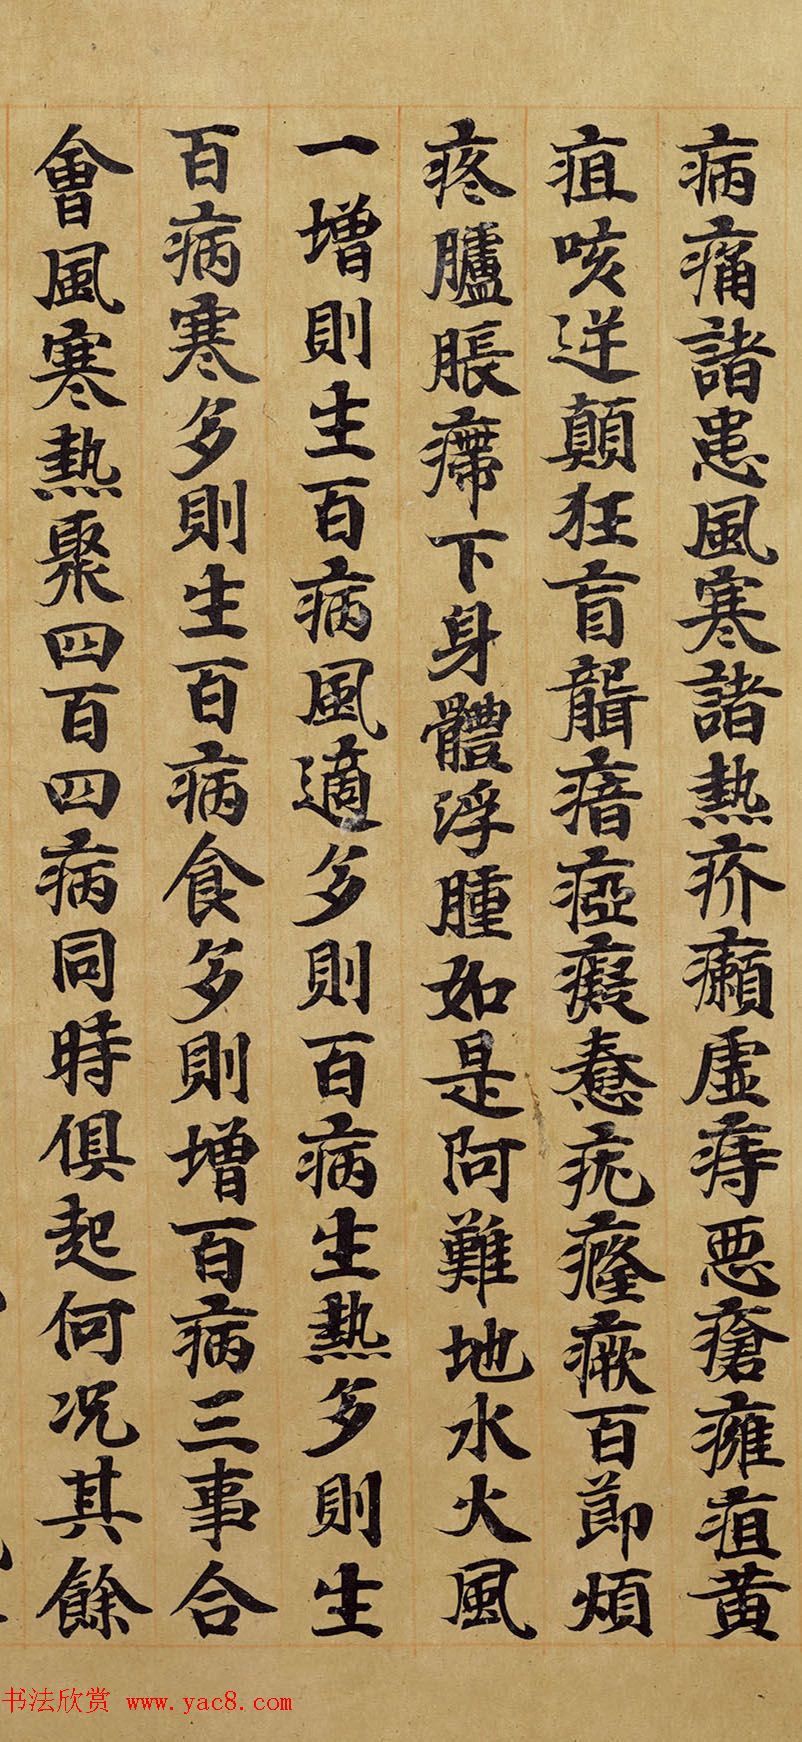 病痛諸患風寒諸熱疥癩虛痔惡瘡癰疽黃
疽咳逆顛狂盲聾瘖瘂癡惷疣癃瘶百節煩
疼臚脹㿃下身體浮腫如是阿難地水火風
一增則生百病風適多則百病生熱多則生
百病寒多則生百病食多則增百病三事合
會風寒熱聚四百四病同時俱起何況其餘
书法欣赏 www.yac8.com